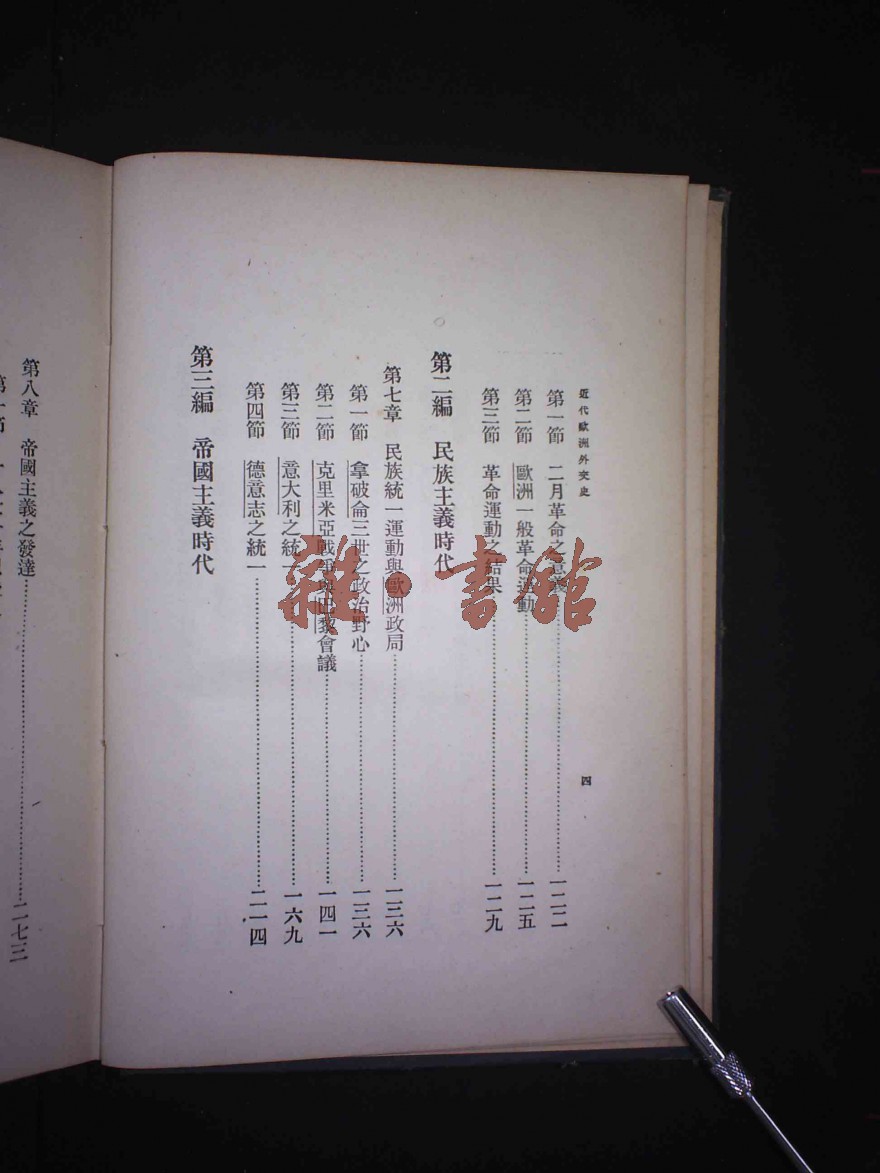 近代歐洲外交史
四
第一節 二月革命之意義 一二二
第二節 歐洲一般革命運動 一二五
第三節 革命運動之結果 一二九
第二編 民族主義時代
第七章 民族統一運動與歐洲政局 一三六
第一節 拿破侖三世之政治野心 一三六
第二節 克里米亞戰爭與巴黎會議 一四一
第三節 意大利之統一 一六九
第四節 德意志之統一 二一四
第三編 帝國主義時代
第八章 帝國主義之發達 二七三
雜·書館